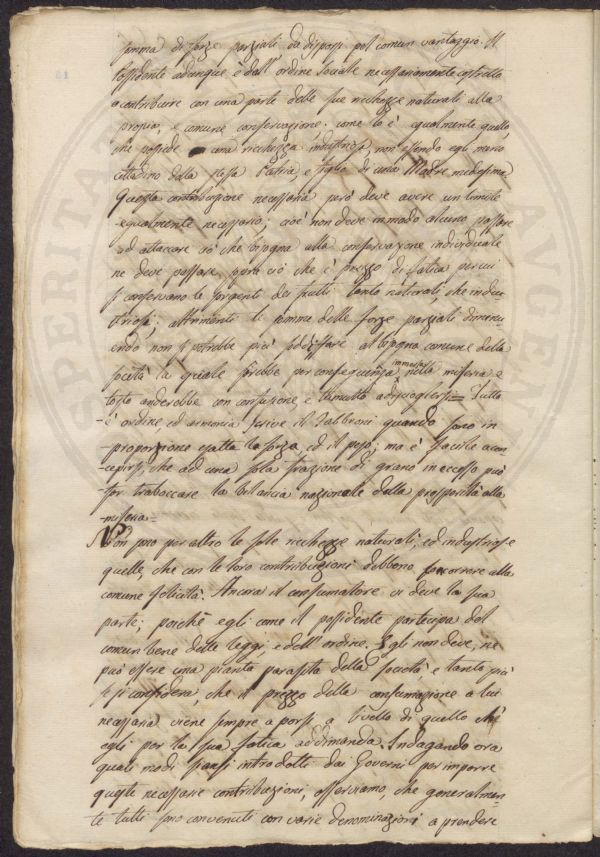 somma di forze parziali da disporsi pel comun vantaggio. Il
Possidente adunque è dall'ordine Sociale necessariamente costretto
a contribuire con una parte delle sue ricchezze naturali alla
propria, e comune conservazione; come lo è egualmente quello
che possiede una ricchezza industriosa, non essendo egli meno
cittadino della stessa Patria e figlio di una Madre medesima.
Questa contribuzione necessaria però deve avere un limite
egualmente necessario; cioè non deve in modo alcuno passare
ad attaccare ciò che bisogna alla conservazione individuale
ne deve passare, sopra ciò che è prezzo di fatica per cui
si conservano le sorgenti dei frutti tanto naturali, che indu-
striosi; altrimenti la somma delle forze parziali diminu-
endo non si potrebbe più soddisfare al bisogno comune della
società la quale sarebbe per conseguenza immersa nella miseria e
tosto anderebbe con confusione, e tumulto a disciogliersi = Tutto
è ordine, ed armonia scrive il Fabbroni quando sono in
proporzione esatta la forza, ed il peso; ma è facile a con-
cepirsi, che ad una sola frazione di grano in eccesso può
far traboccare la bilancia nazionale dalla prosperità alla
miseria =
Non sono per altro le sole ricchezze naturali, ed industriose
quelle, che con le loro contribuzioni debbono concorrere alla
comune felicità. Ancora il consumatore vi deve la sua
parte; poichè egli come il possidente partecipa del
comun bene delle leggi, e dell'ordine. Egli non deve, ne
può essere una pianta parasita della società, e tanto più
se si considera, che il prezzo della consumazione a lui
necessaria viene sempre a porsi a livello di quello che
egli per la sua fatica addimanda. Indagando ora
quali modi siansi introdotti dai Governi per imporre
queste necessarie contribuzioni, osserviamo, che generalmen-
te tutti sono convenuti con varie denominazioni a prendere